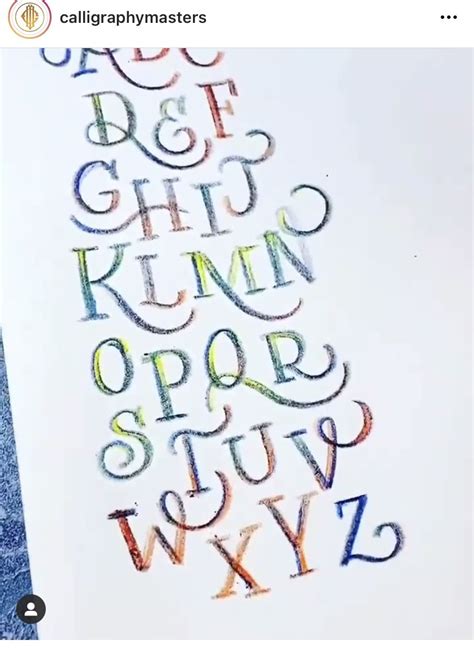 calligraphymasters
ABC
DEF
GHIJ
KLMN
OPQR
STUV
WXYZ